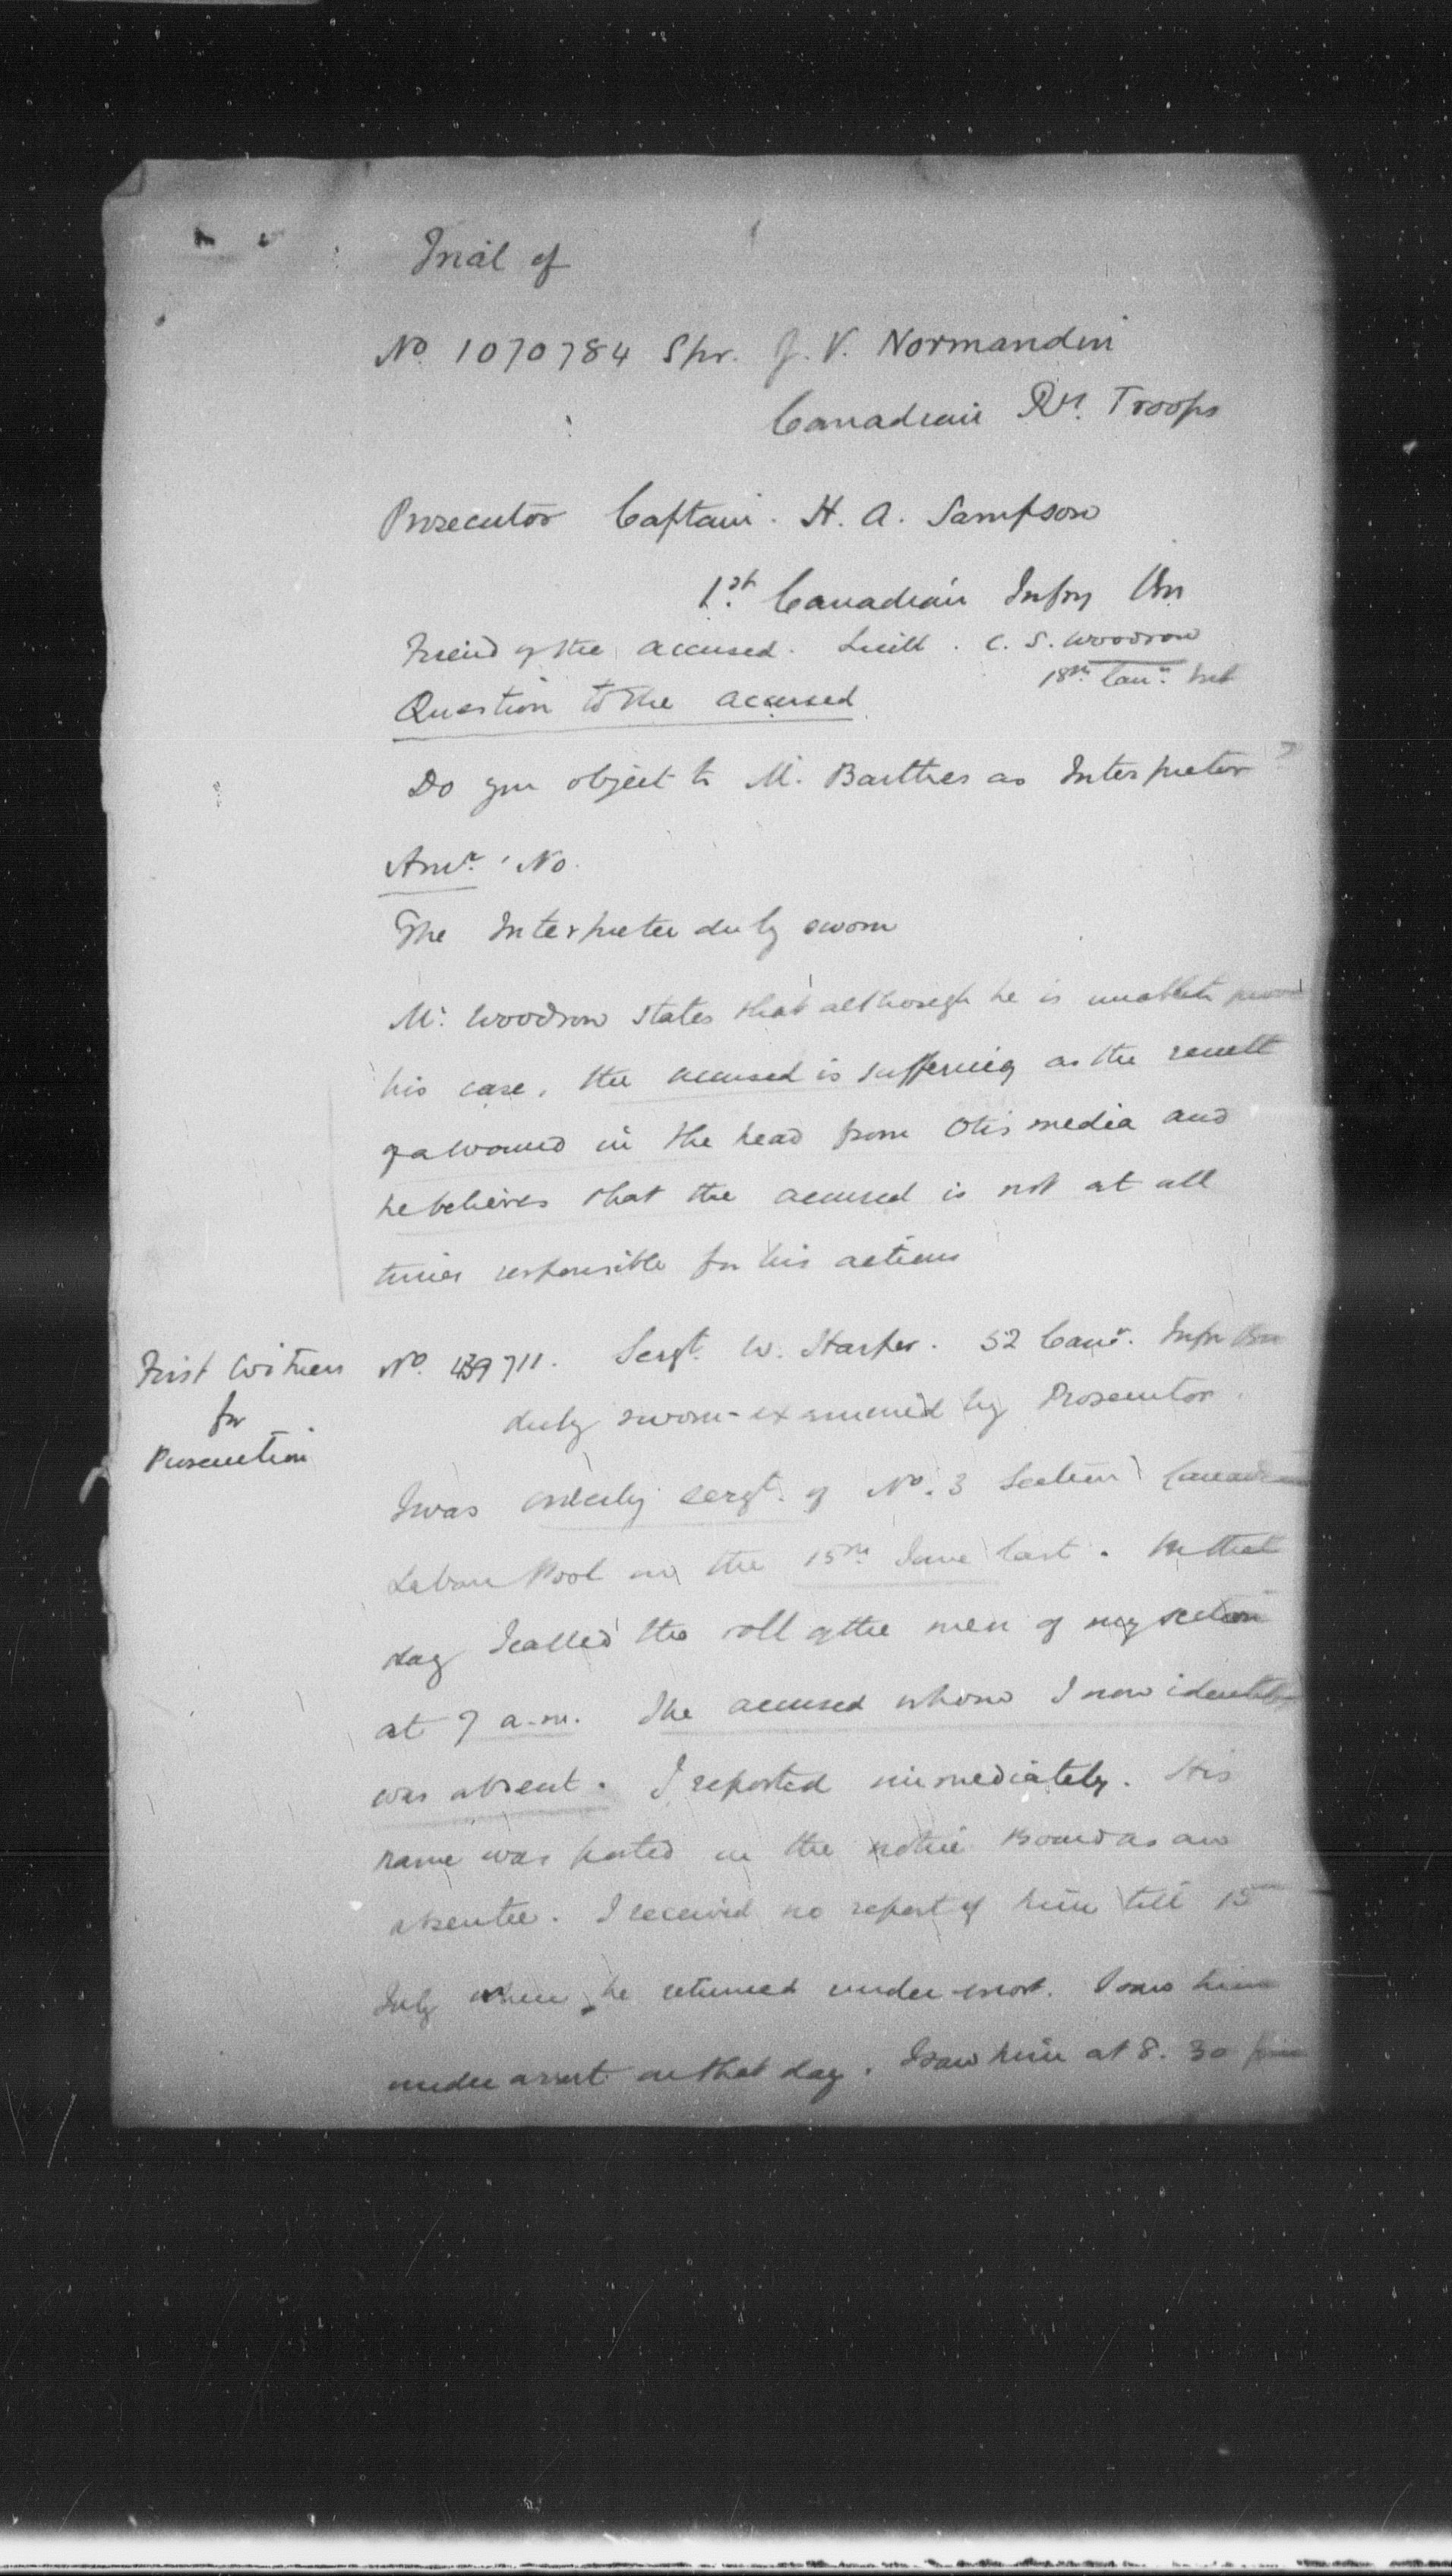 Trial of
No 1070784 Spr. J. V. Normandin
Canadian Ry. Troops
Prosecutor Captain. H. A. Sampson
1st Canadian Infy Bn
Friend of the accused. Lieut. C. S. Woodrow
18th Can. Inf
Question to the accused
Do you object to Mr. Barthes as Interpreter ?
Answr. No.
The Interpreter duly sworn
Mr. Woodrow states that although he is unable to prove
his case, the accused is suffering as the result
of a wound in the head from Otis media and
he believes that the accused is not at all
times responsible for his actions
First Witness
for
Prosecution
No. 439711. Sergt. W. Harper. 52 Cann. Infy Bn
duly sworn - examined by Prosecutor.
I was orderly sergt. of No. 3 Section Canadian
Labour Pool on the 15th June last. On that
day I called the roll of the men of my section
at 7 a.m. The accused whom I now identify
was absent. I reported immediately. His
name was posted on the notice Board as an
absentee. I received no report of him till 15
July when he returned under escort. I saw him
under arrest on that day. I saw him at 8.30 pm